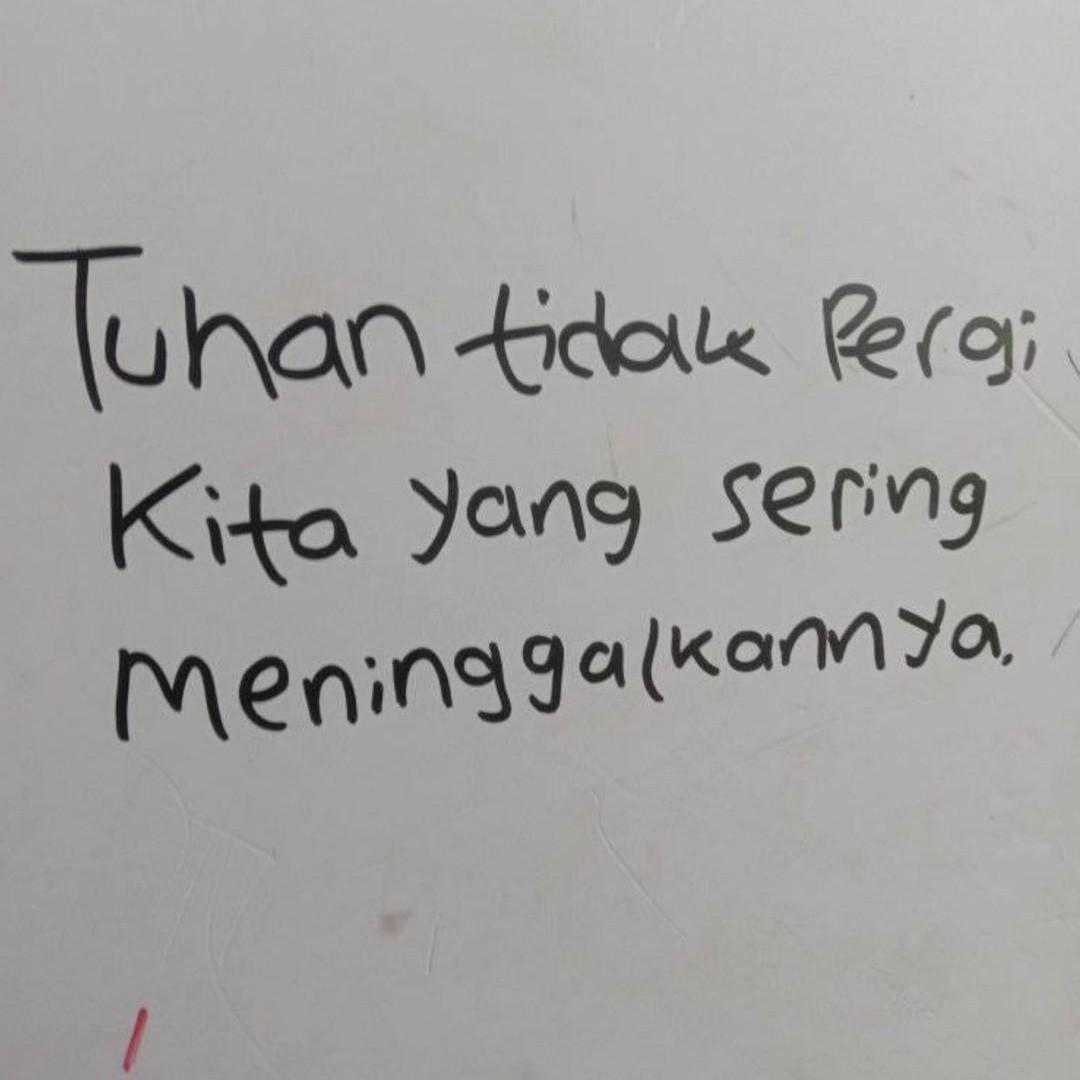 Tuhan tidak Pergi
Kita yang sering
Meninggalkannya.